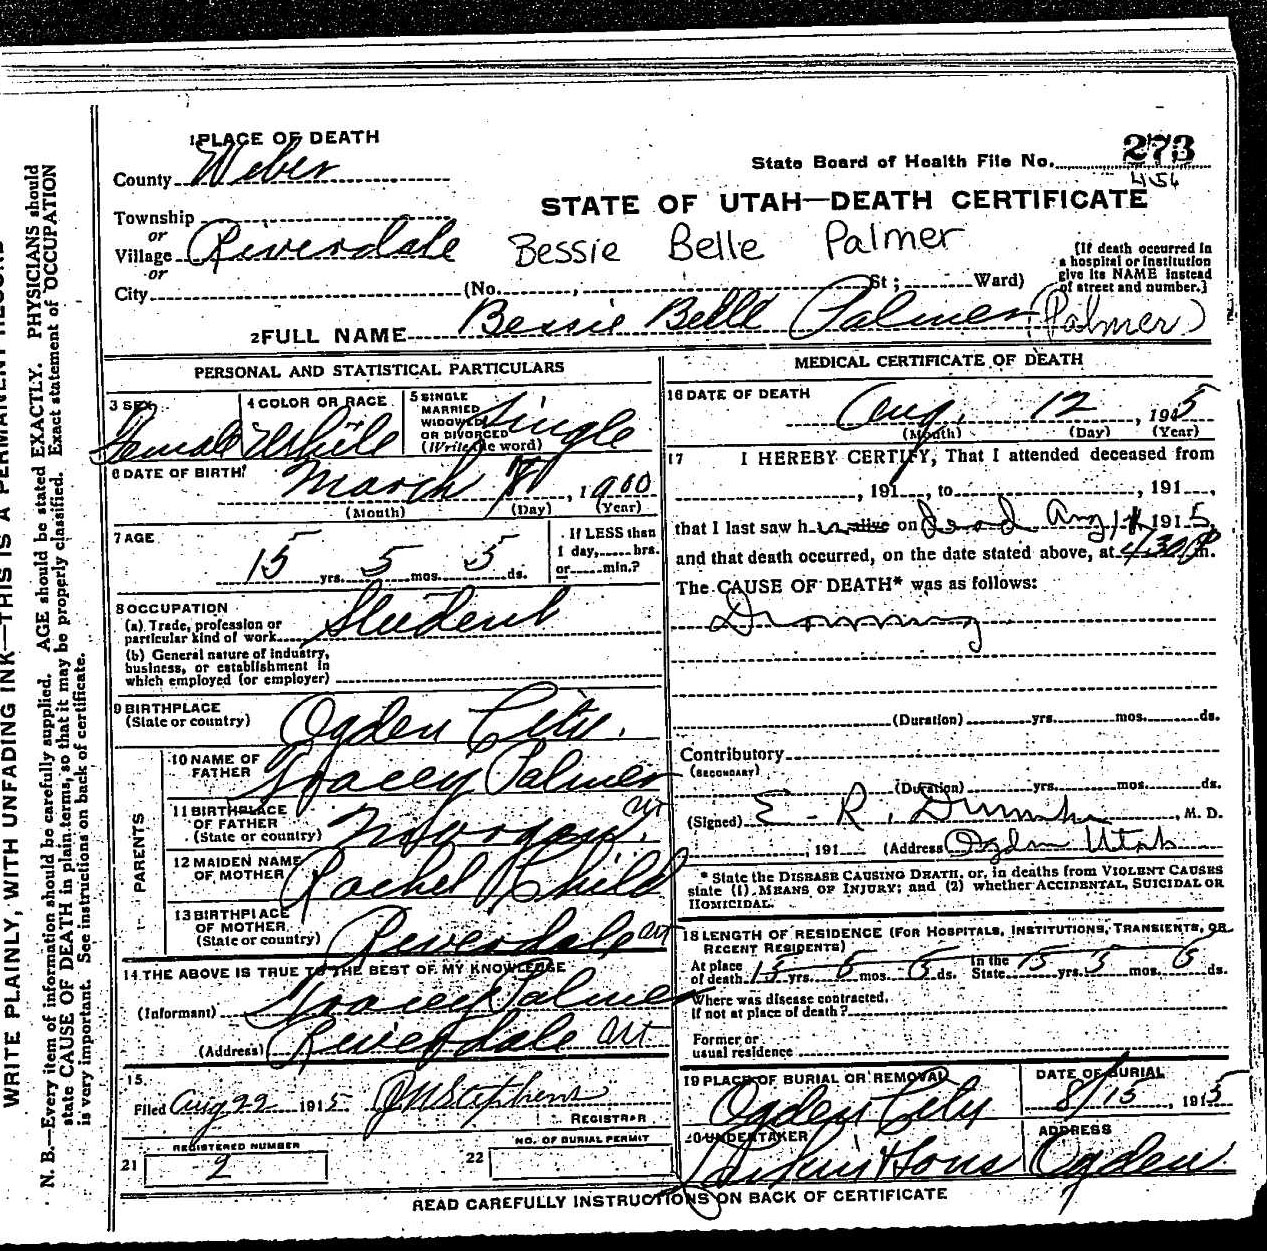 WRITE PLAINLY, WITH UNFADING INK—THIS IS A PERMANENT RECORD
N. B.—Every item of information should be carefully supplied. AGE should be stated EXACTLY. PHYSICIANS should
state CAUSE OF DEATH in plain terms, so that it may be properly classified. Exact statement of OCCUPATION
is very important. See instructions on back of certificate.
1 PLACE OF DEATH
County Weber
State Board of Health File No. 273
454
STATE OF UTAH—DEATH CERTIFICATE
Township
or
Village Riverdale
Bessie Belle Palmer
or
City (No. , St; Ward)
(If death occurred in
a hospital or institution
give its NAME instead
of street and number.)
2 FULL NAME Bessie Belle Palmer (Palmer)
PERSONAL AND STATISTICAL PARTICULARS
3 SEX Female
4 COLOR OR RACE White
5 SINGLE
MARRIED
WIDOWED
OR DIVORCED
(Write the word) Single
6 DATE OF BIRTH March , 1900
(Month) (Day) (Year)
7 AGE
15 yrs. 5 mos. 5 ds.
If LESS than
1 day, hrs.
or min.?
8 OCCUPATION
(a) Trade, profession or
particular kind of work Student
(b) General nature of industry,
business, or establishment in
which employed (or employer)
9 BIRTHPLACE
(State or country) Ogden City.
PARENTS
10 NAME OF
FATHER Tracey Palmer
11 BIRTHPLACE
OF FATHER
(State or country)
12 MAIDEN NAME
OF MOTHER Rachel Child
13 BIRTHPLACE
OF MOTHER
(State or country) Riverdale Ut
14 THE ABOVE IS TRUE TO THE BEST OF MY KNOWLEDGE
(Informant) Tracey Palmer
(Address) Riverdale Ut
15
Filed Aug 22 1915 Stephens
REGISTRAR
REGISTERED NUMBER
21 2
NO. OF BURIAL PERMIT
22
MEDICAL CERTIFICATE OF DEATH
16 DATE OF DEATH
Aug. 12, 1915
(Month) (Day) (Year)
17 I HEREBY CERTIFY, That I attended deceased from
, 191 , to , 191 ,
that I last saw her alive on dead Aug 1915,
and that death occurred, on the date stated above, at 4/30 P m.
The CAUSE OF DEATH* was as follows:
Drowning
(Duration) yrs. mos. ds.
Contributory
(SECONDARY)
(Duration) yrs. mos. ds.
(Signed) E. R. , M. D.
, 191 (Address) Ogden Utah
* State the DISEASE CAUSING DEATH, or, in deaths from VIOLENT CAUSES
state (1) MEANS OF INJURY; and (2) whether ACCIDENTAL, SUICIDAL OR
HOMICIDAL.
18 LENGTH OF RESIDENCE (FOR HOSPITALS, INSTITUTIONS, TRANSIENTS, OR
RECENT RESIDENTS)
At place
of death 15 yrs. 5 mos. 5 ds. In the
State 15 yrs. 5 mos. 5 ds.
Where was disease contracted,
if not at place of death?
Former or
usual residence
19 PLACE OF BURIAL OR REMOVAL
Ogden City
DATE OF BURIAL
8/15, 1915
20 UNDERTAKER
Larkin & Sons
ADDRESS
Ogden
READ CAREFULLY INSTRUCTIONS ON BACK OF CERTIFICATE